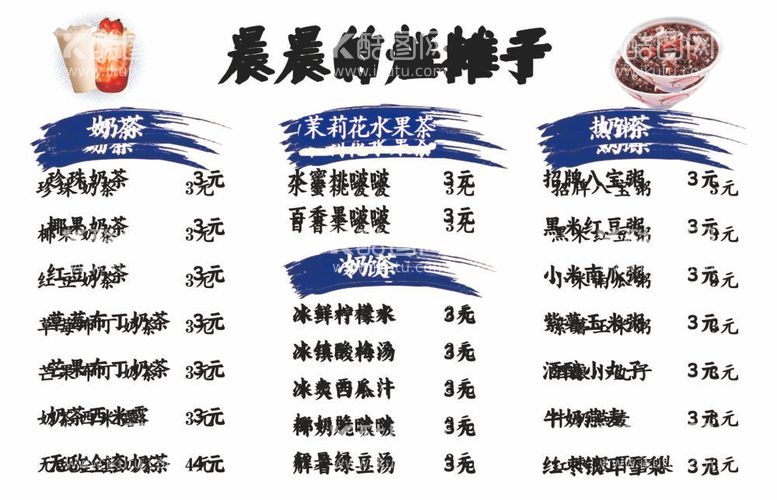 晨晨的摊子
奶茶
珍珠奶茶 3元
椰果奶茶 3元
红豆奶茶 3元
草莓布丁奶茶 3元
芒果布丁奶茶 3元
奶茶西米露 3元
无敌全套奶茶 4元
茉莉花水果茶
水蜜桃啵啵 3元
百香果啵啵 3元
冰鲜柠檬水 3元
冰镇酸梅汤 3元
冰爽西瓜汁 3元
椰奶脆啵啵 3元
解暑绿豆汤 3元
热粥
招牌八宝粥 3元
黑米红豆粥 3元
小米南瓜粥 3元
紫薯玉米粥 3元
酒酿小丸子 3元
牛奶燕麦 3元
红枣银耳雪梨 3元